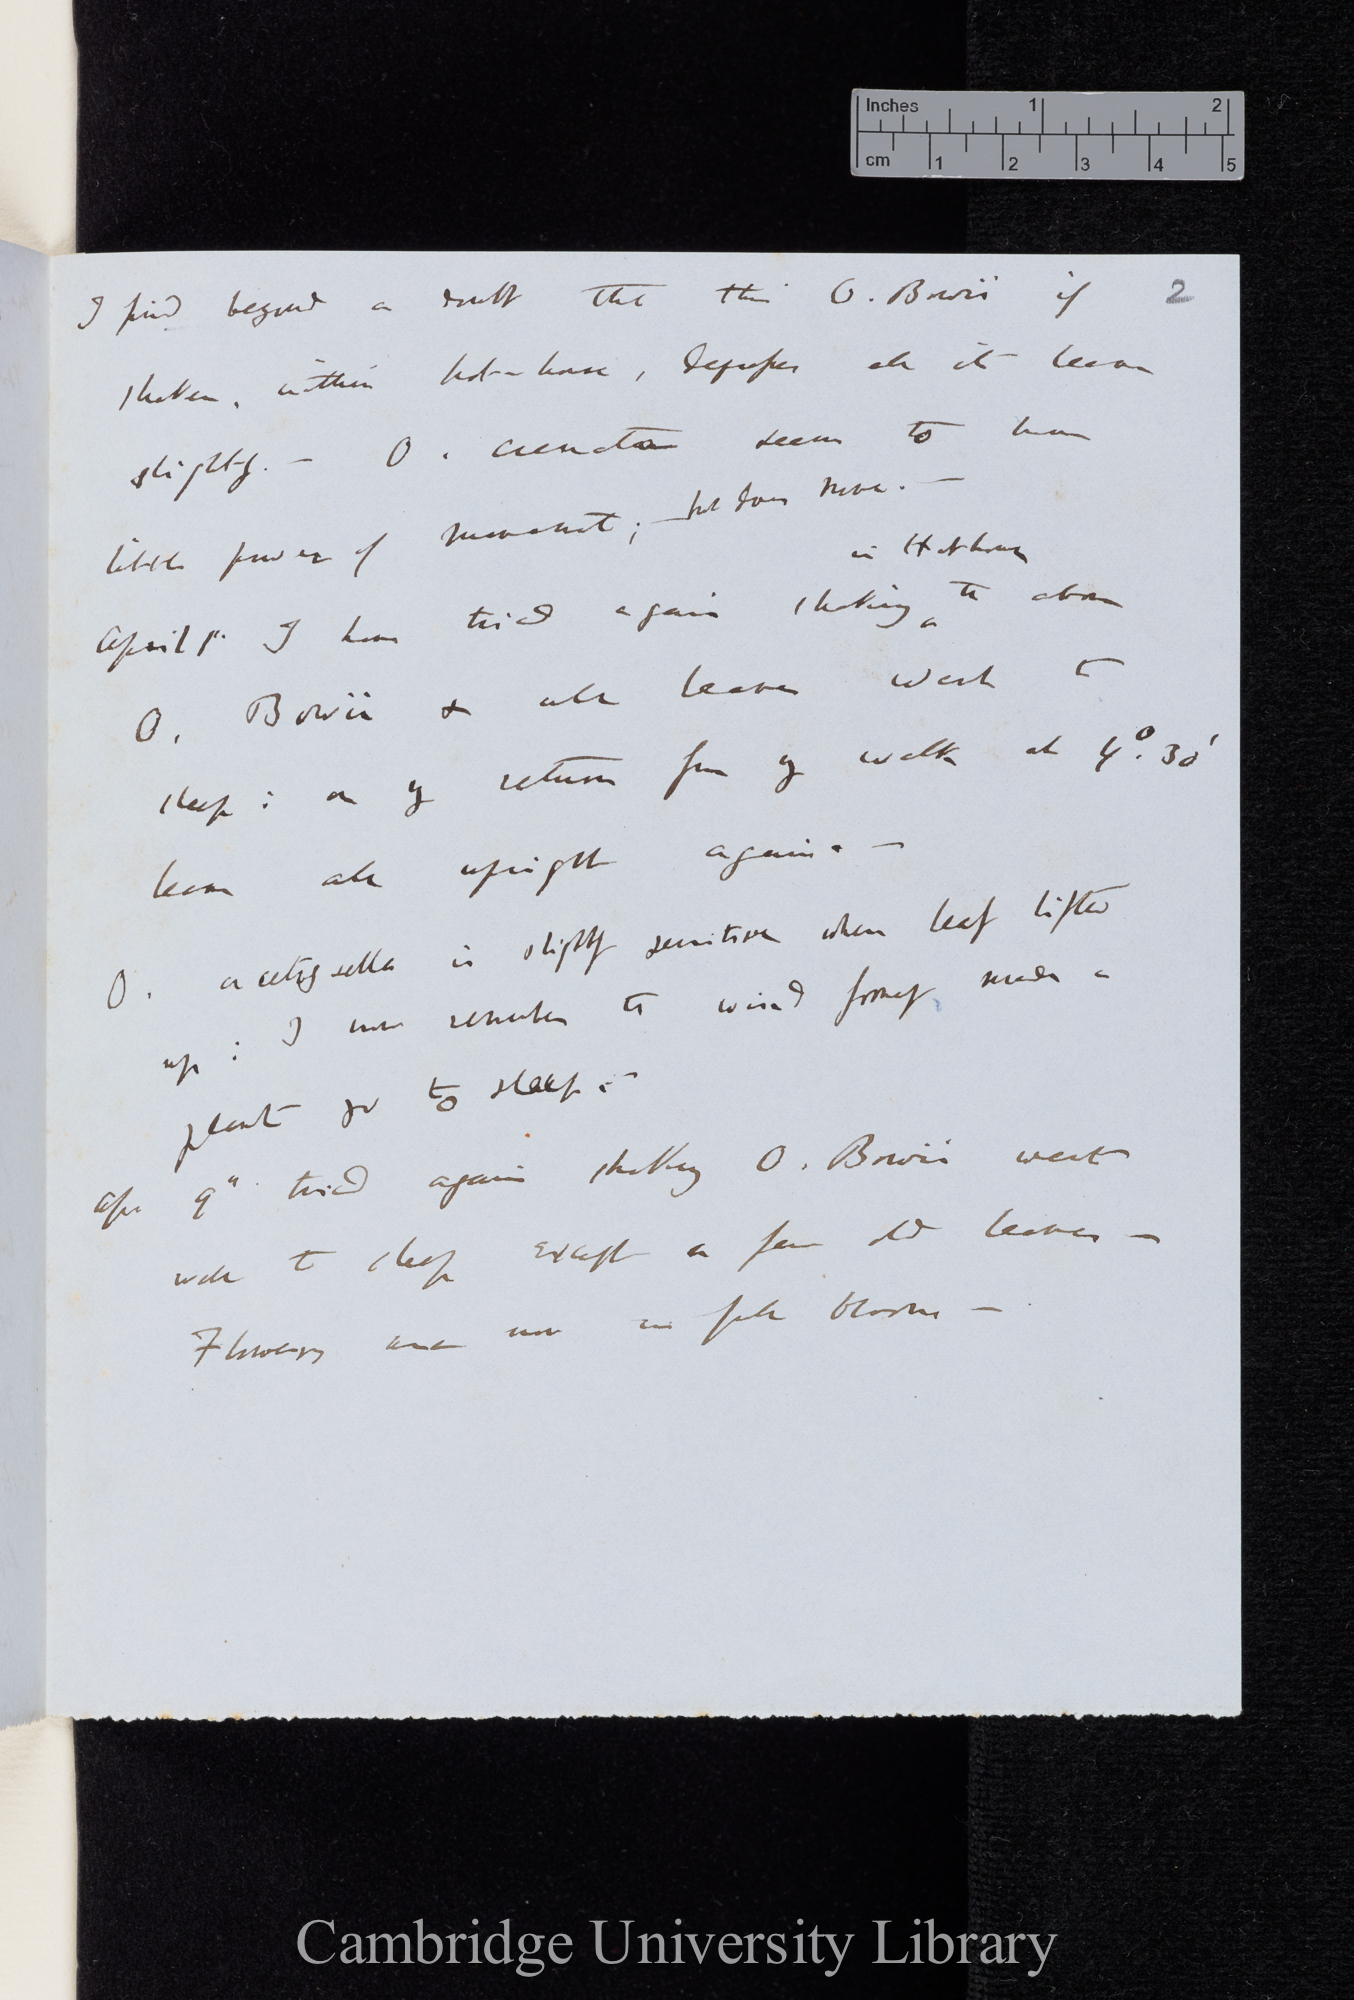 Inches 1 2
cm 1 2 3 4 5
2
I find beyond a doubt that this O. Bowii if
shaken, within hot-house, depresses all its leaves
slightly. — O. crenata seems to have
little power of movement; — but does move. —
in Hothouse
April 1st. I have tried again shaking ^ the above
O. Bowii & all leaves went to
sleep: on my return from my walk at 4°. 30'
leaves all upright again. —
O. acetosella is slightly sensitive when leaf lifted
up: I now remember the wind formerly made a
plant go to sleep. —
Ap. 9" tried again shaking O. Bowii went
well to sleep except a few old leaves —
Flowers are now in full bloom —
Cambridge University Library